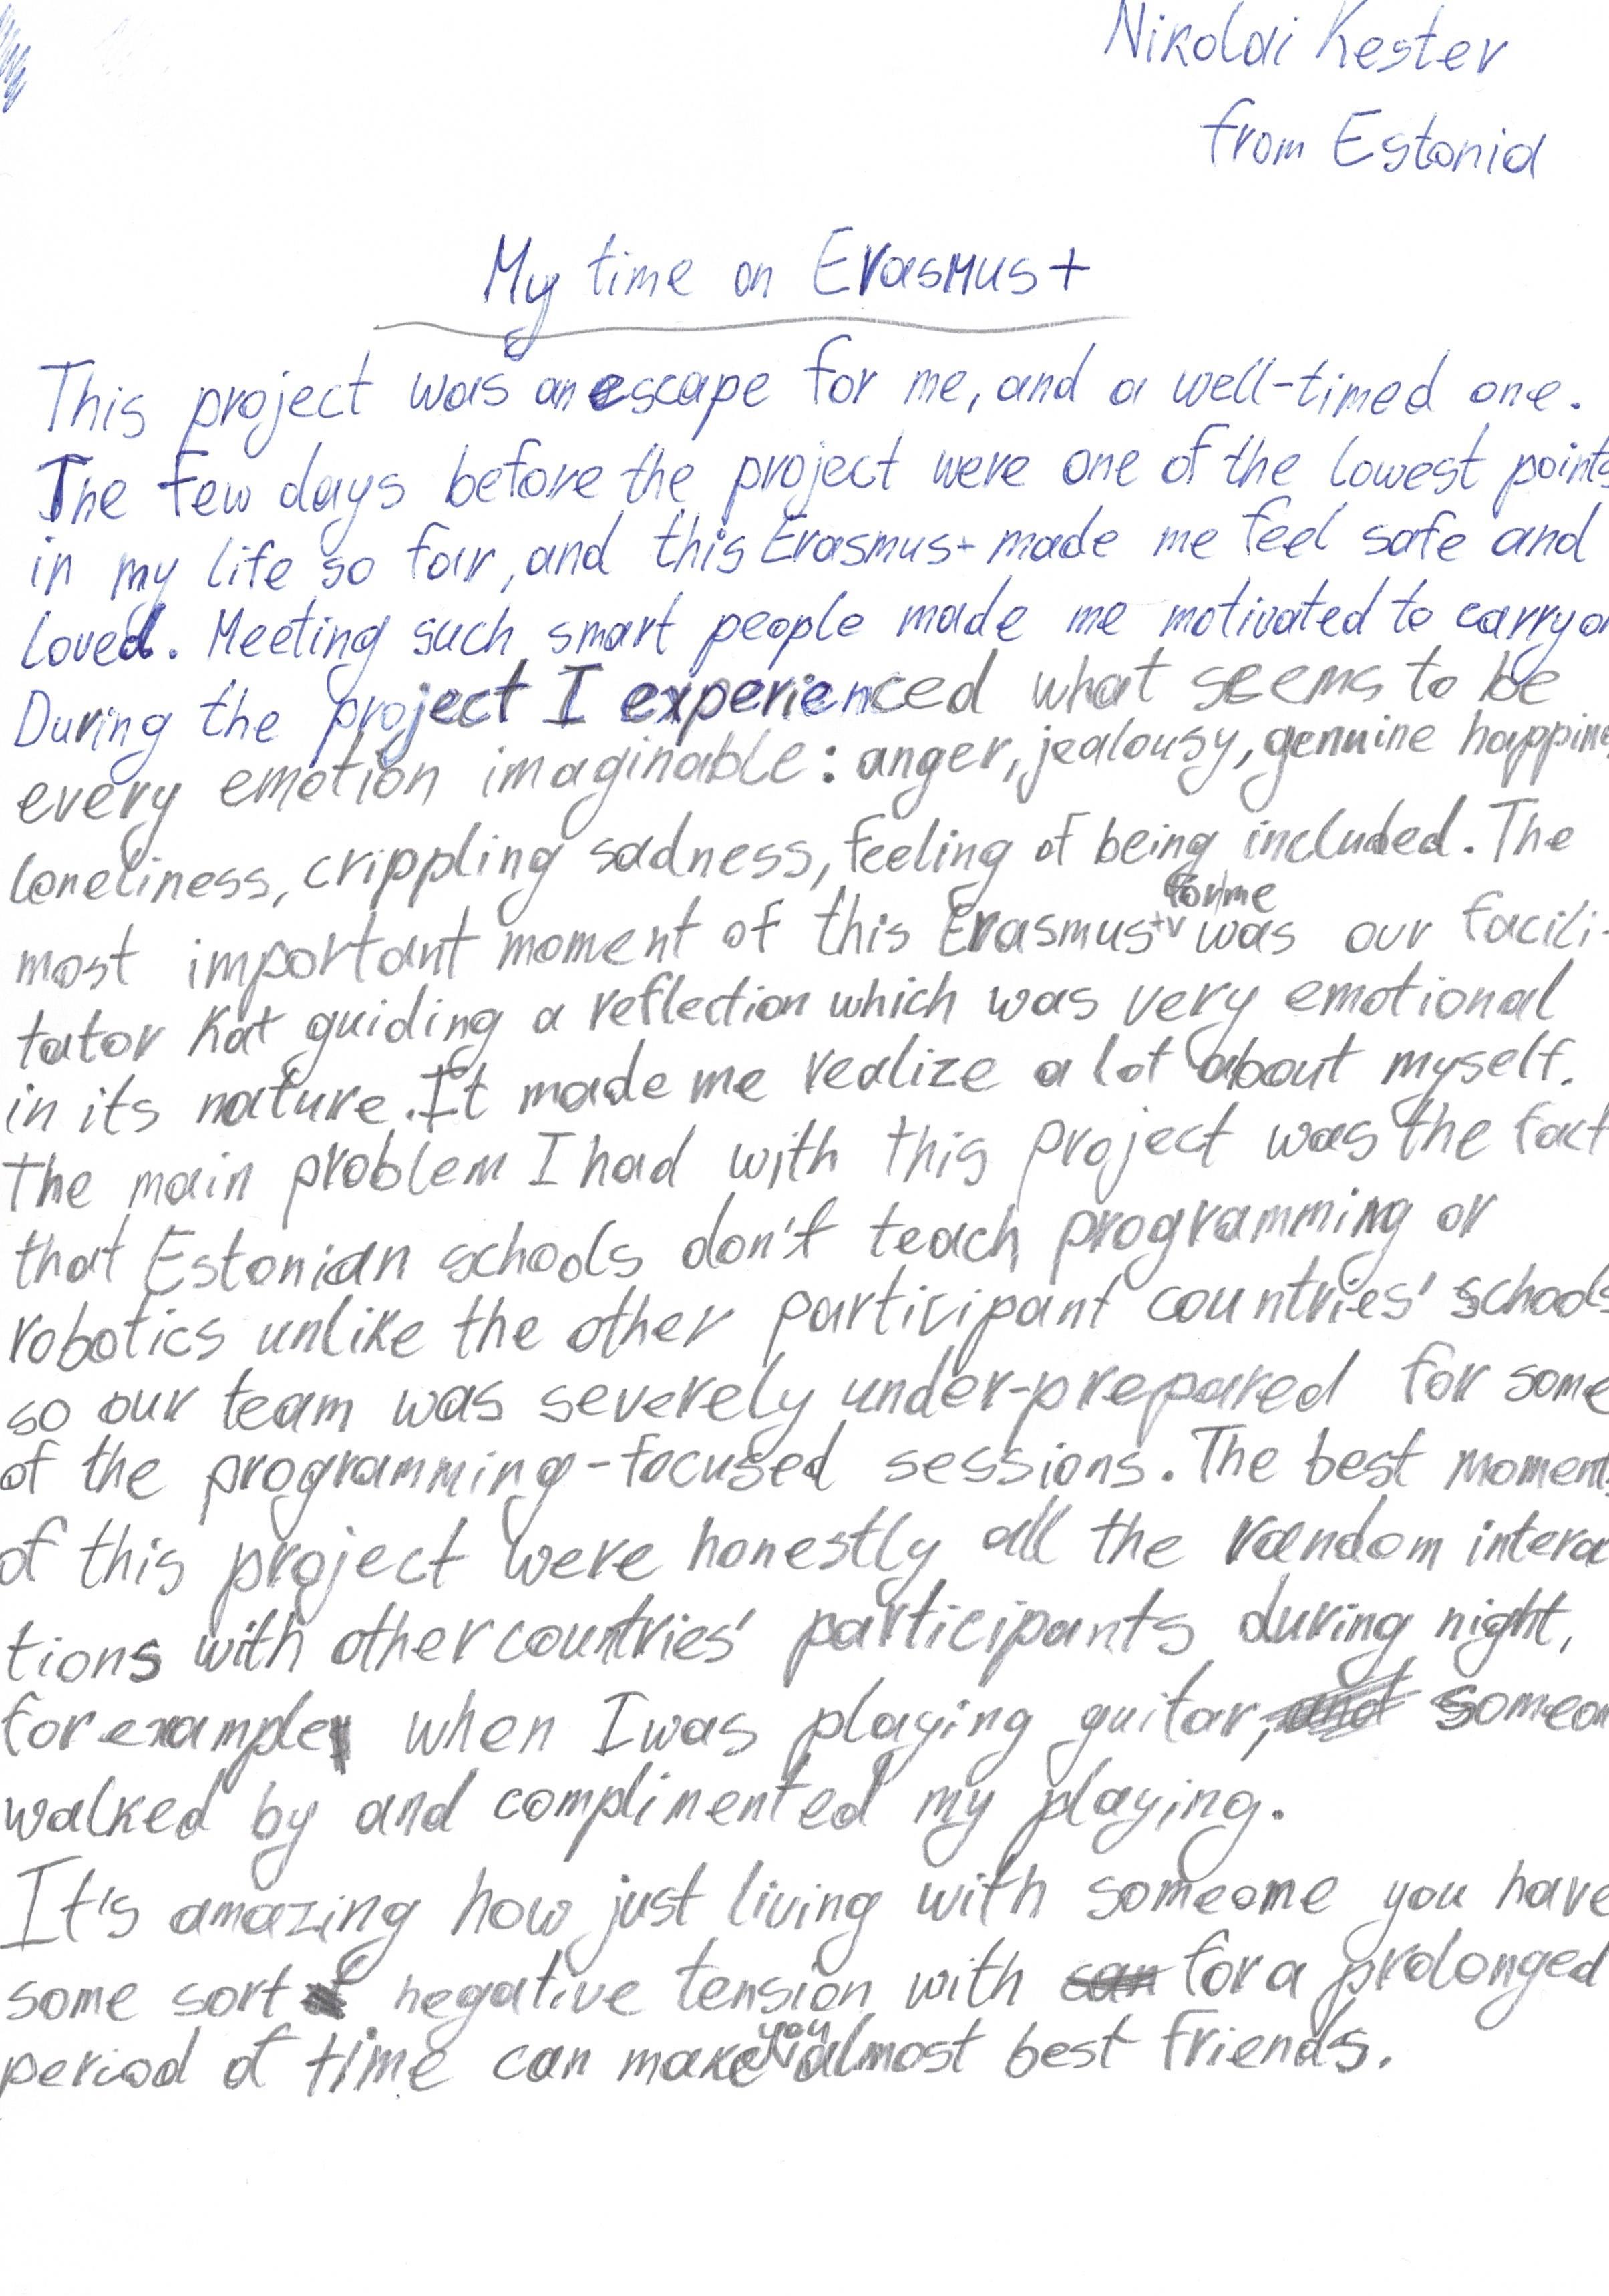 Nikolai Kester
from Estonia
My time on Erasmus+
This project was an escape for me, and a well-timed one.
The few days before the project were one of the lowest points
in my life so far, and this Erasmus+ made me feel safe and
loved. Meeting such smart people made me motivated to carry on
During the project I experienced what seems to be
every emotion imaginable: anger, jealousy, genuine happine
loneliness, crippling sadness, feeling of being included. The
most important moment of this Erasmus+ for me was our facili-
tator Kat guiding a reflection which was very emotional
in its nature. It made me realize a lot about myself.
The main problem I had with this project was the fact
that Estonian schools don't teach programming or
robotics unlike the other participant countries' schools
so our team was severely under-prepared for some
of the programming-focused sessions. The best moments
of this project were honestly all the random interac
tions with other countries' participants during night,
for example when I was playing guitar, someon
walked by and complimented my playing.
It's amazing how just living with someone you have
some sort of negative tension with for a prolonged
period of time can make you almost best friends.